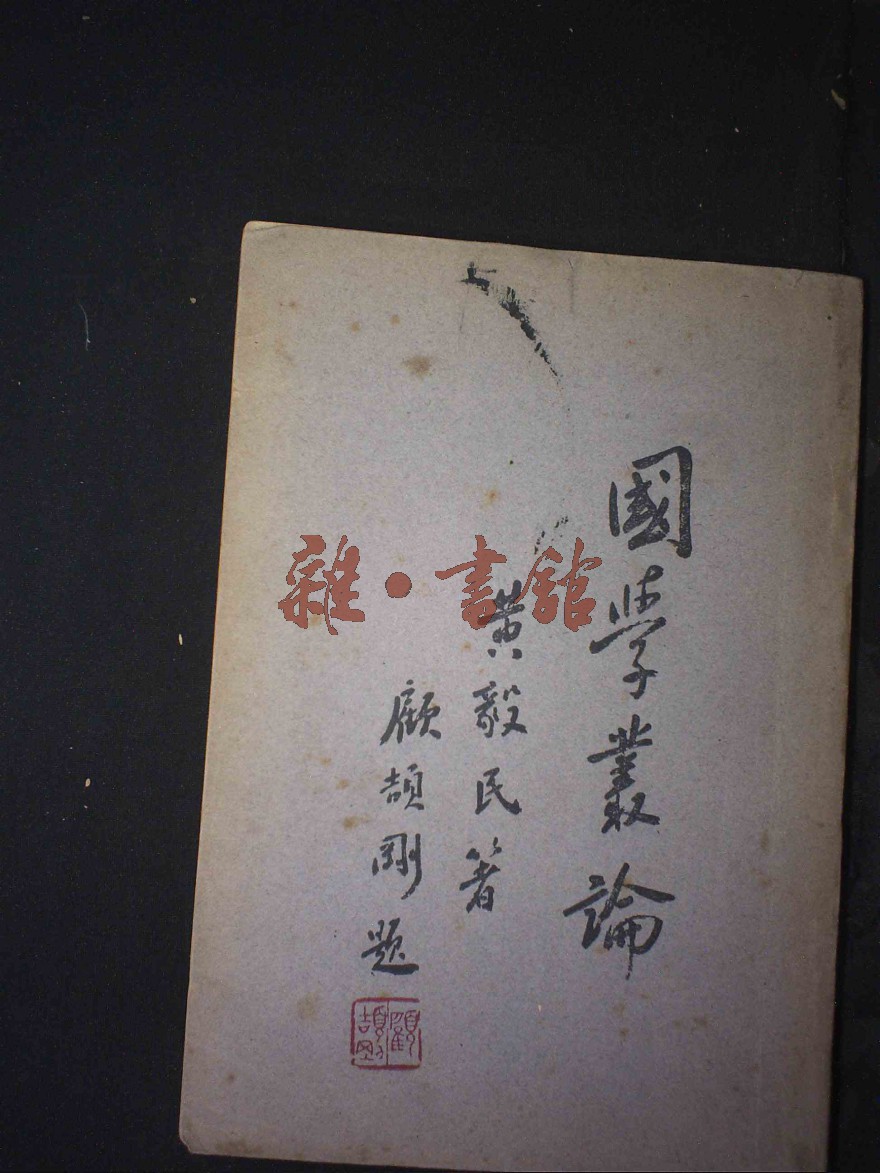 國學叢論
黄毅民著
顧頡剛題
顧頡剛
雜·書館